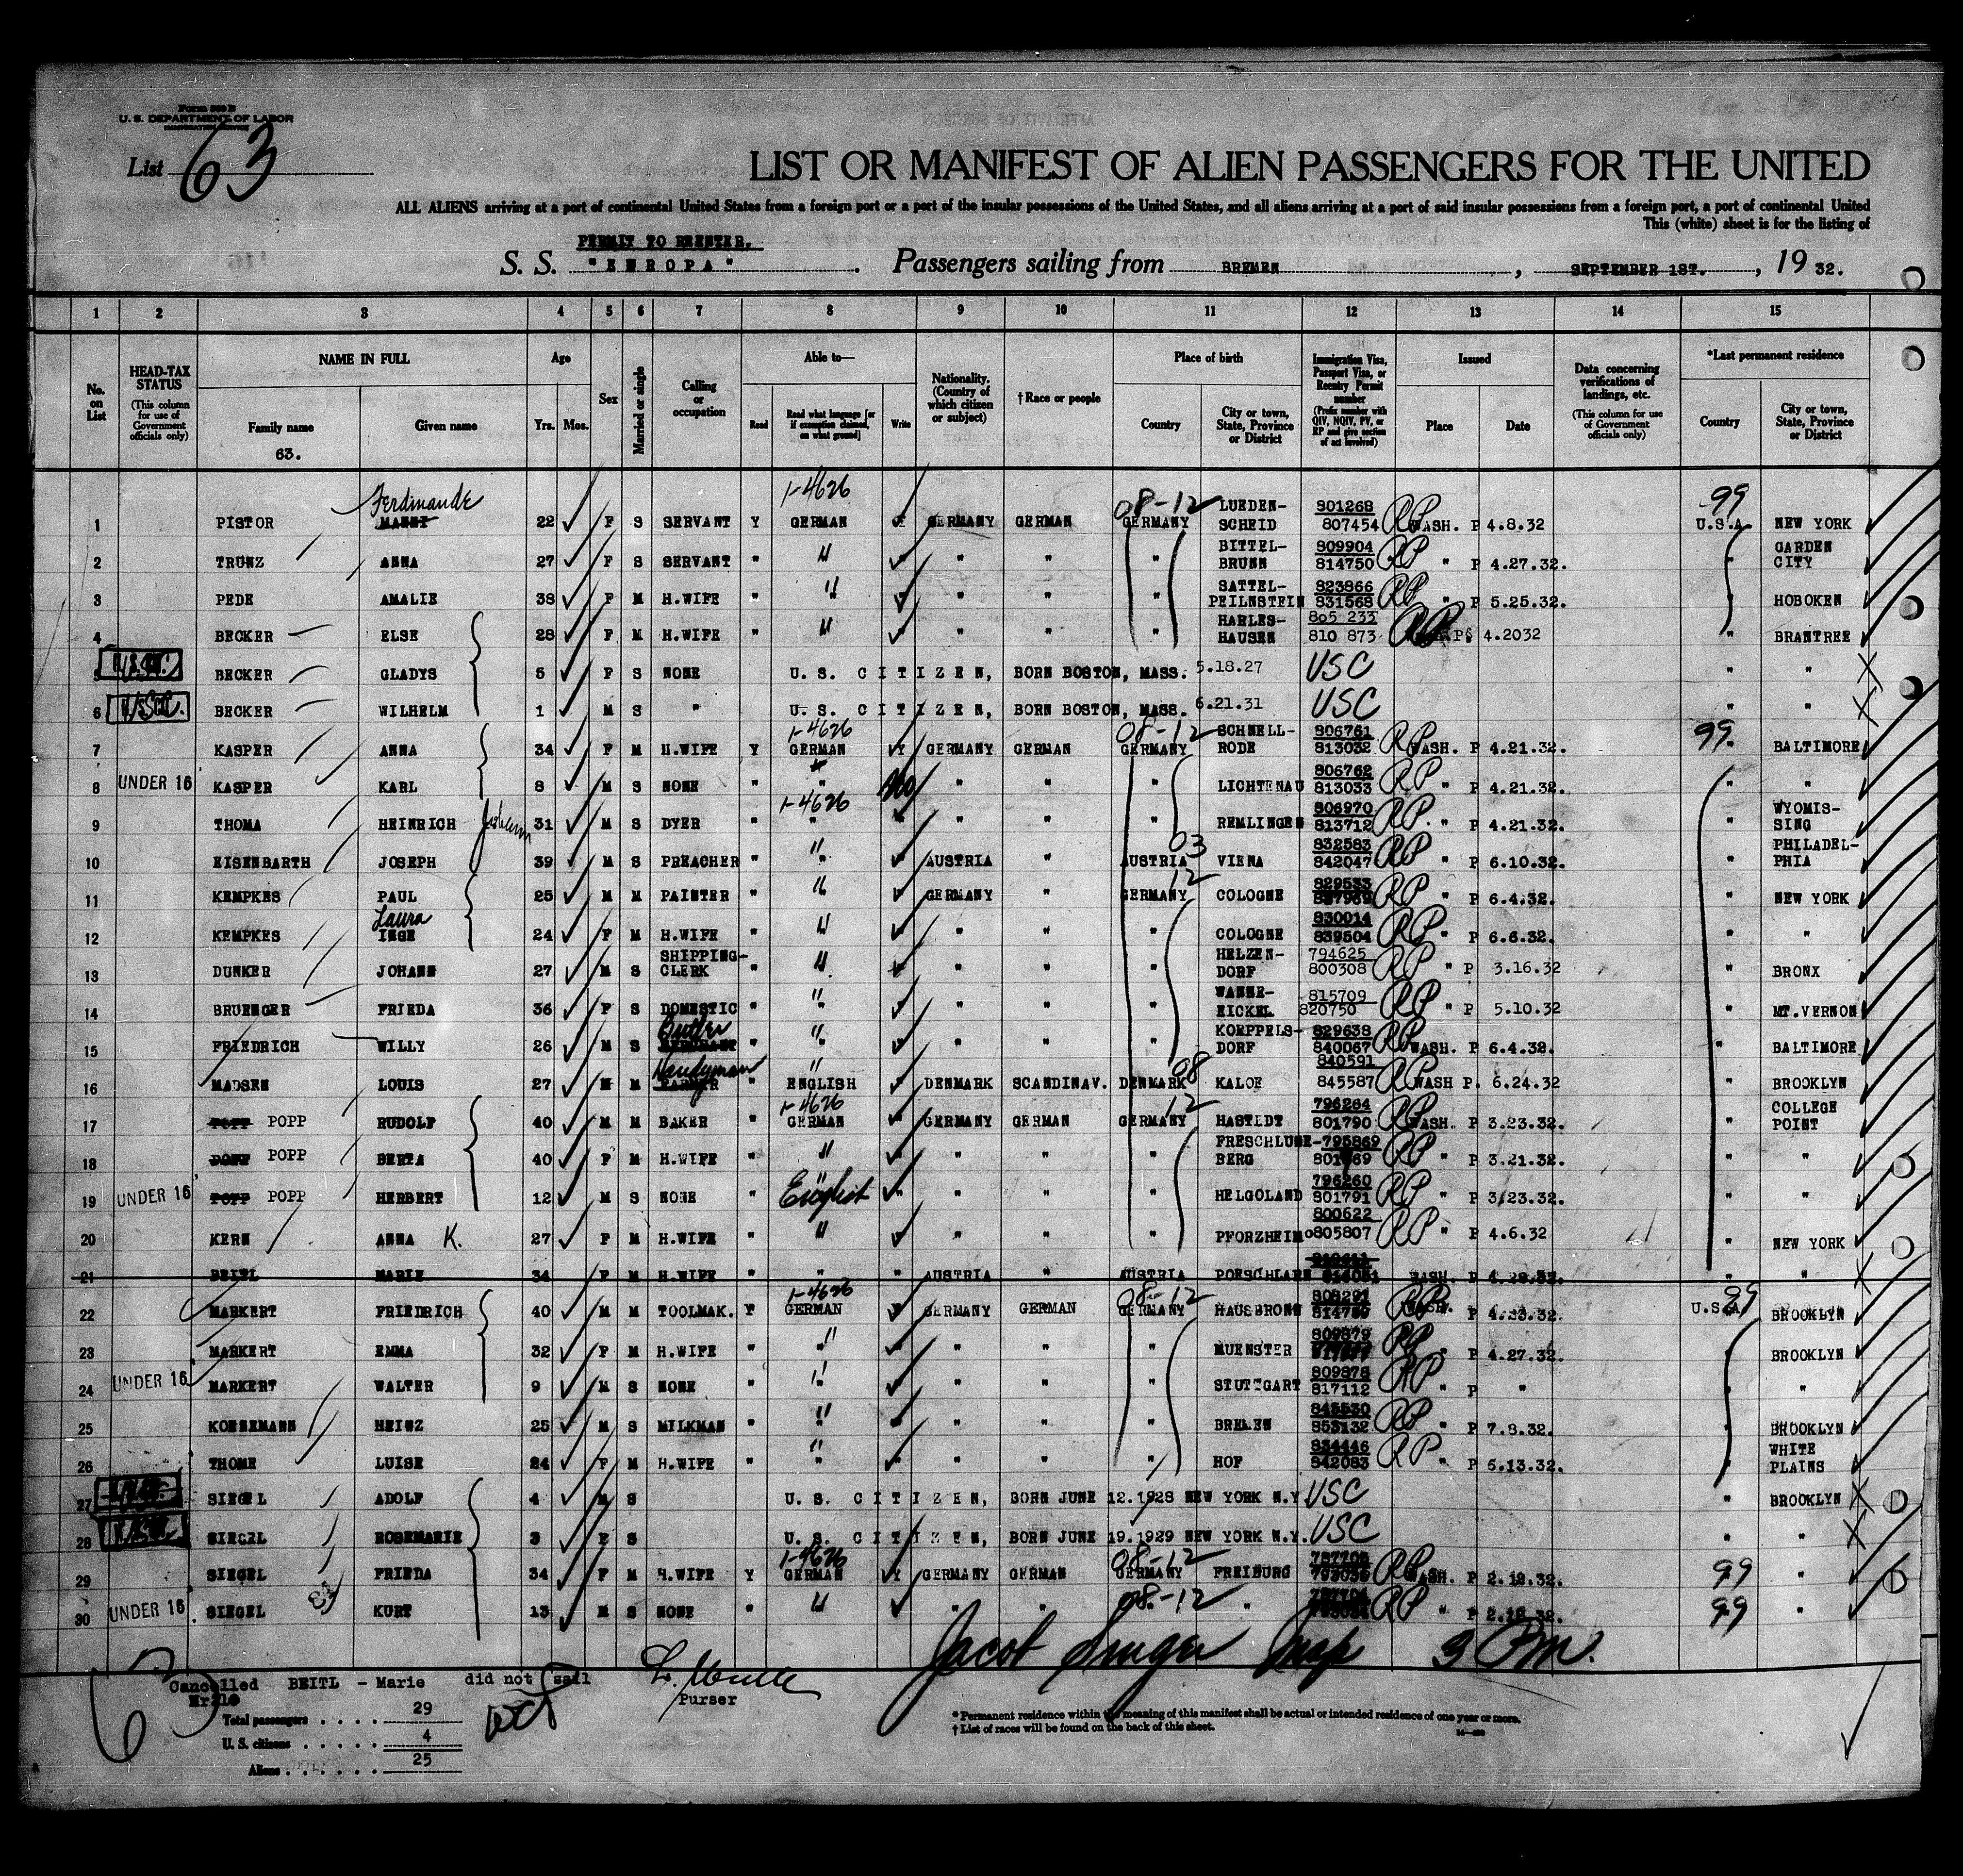 Form 500 B
U. S. DEPARTMENT OF LABOR
IMMIGRATION SERVICE
List 63
LIST OR MANIFEST OF ALIEN PASSENGERS FOR THE UNITED
ALL ALIENS arriving at a port of continental United States from a foreign port or a port of the insular possessions of the United States, and all aliens arriving at a port of said insular possessions from a foreign port, a port of continental United
This (white) sheet is for the listing of
PERMIT TO REENTER.
S. S. "EUROPA". Passengers sailing from BREMEN, SEPTEMBER 1ST., 19 32.
1 2 3 4 5 6 7 8 9 10 11 12 13 14 15
No. on List
HEAD-TAX STATUS (This column for use of Government officials only)
NAME IN FULL Family name Given name
63.
Age Yrs. Mos.
Sex
Married or single
Calling or occupation
Able to— Read Read what language [or if exemption claimed, on what ground] Write
Nationality. (Country of which citizen or subject)
†Race or people
Place of birth Country City or town, State, Province or District
Immigration Visa, Passport Visa, or Reentry Permit number (Prefix number with QIV, NQIV, PV, or RP and give section of act involved)
Issued Place Date
Data concerning verifications of landings, etc. (This column for use of Government officials only)
*Last permanent residence Country City or town, State, Province or District
1 PISTOR Ferdinande 22 F S SERVANT Y 1-4626 GERMAN GERMANY GERMAN 08-12 GERMANY LUEDEN-SCHEID 801268 807454 RP WASH. P 4.8.32 99 U.S.A. NEW YORK
2 TRUNZ ANNA 27 F S SERVANT " " " " " BITTEL-BRUNN 809904 814750 RP " P 4.27.32. " GARDEN CITY
3 PEDE AMALIE 38 F M H.WIFE " " " " " SATTEL-PEILNSTEIN 823866 831568 RP " P 5.25.32. " HOBOKEN
4 BECKER ELSE 28 F M H.WIFE " " " " " HARLES-HAUSEN 805 233 810 873 RP 4.2032 " BRANTREE
5 BECKER GLADYS 5 F S NONE U. S. CITIZEN, BORN BOSTON, MASS. 5.18.27 USC " "
6 USC. BECKER WILHELM 1 M S " U. S. CITIZEN, BORN BOSTON, MASS. 6.21.31 USC " "
7 KASPER ANNA 34 F M H.WIFE Y 1-4626 GERMAN Y GERMANY GERMAN 08-12 GERMANY SCHNELL-RODE 806761 813032 RP WASH. P 4.21.32. 99 BALTIMORE
8 UNDER 16 KASPER KARL 8 M S NONE " " No " " " LICHTENAU 806762 813033 RP " P 4.21.32. " "
9 THOMA HEINRICH 31 M S DYER " 1-4626 " " " " " REMLINGEN 806970 813712 RP " P 4.21.32. " WYOMIS-SING
10 EISENBARTH JOSEPH 39 M S PREACHER " " " AUSTRIA " 03 AUSTRIA VIENA 832583 842047 RP " P 6.10.32. " PHILADEL-PHIA
11 KEMPKES PAUL 25 M M PAINTER " " " GERMANY " 12 GERMANY COLOGNE 829533 RP " P 6.4.32. " NEW YORK
12 KEMPKES Laura INGE 24 F M H.WIFE " " " " " " COLOGNE 830014 839504 RP " P 6.6.32. " "
13 DUNKER JOHANN 27 M S SHIPPING-CLERK " " " " " " HELZEN-DORF 794625 800308 RP " P 3.16.32 " BRONX
14 BRUENGER FRIEDA 36 F S DOMESTIC " " " " " " WANNE-EICKEL 815709 820750 RP " P 5.10.32 " MT.VERNON
15 FRIEDRICH WILLY 26 M S Butler " " " " " " KOEPPELS-DORF 829638 840067 RP WASH. P 6.4.32. " BALTIMORE
16 MADSEN LOUIS 27 M M Handyman " ENGLISH DENMARK SCANDINAV. 08 DENMARK KALOE 840591 845587 RP WASH P. 6.24.32 " BROOKLYN
17 POPP RUDOLF 40 M M BAKER " 1-4626 GERMAN GERMANY GERMAN 12 GERMANY HASTEDT 796264 801790 RP WASH. P 3.23.32. " COLLEGE POINT
18 POPP BERTA 40 F M H.WIFE " " " " " " FRESCHLUNE-BERG 795869 RP " P 3.21.32. " "
19 UNDER 16 POPP HERBERT 12 M S NONE " English " " " " HELGOLAND 796260 801791 RP " P 3/23.32. " "
20 KERN ANNA K. 27 F M H.WIFE " " " " " " PFORZHEIM 800622 805807 RP " P 4.6.32 " NEW YORK
21 BEITL MARIE 34 F M H.WIFE " " " AUSTRIA " AUSTRIA POESCHLARN WASH. P " "
22 MARKERT FRIEDRICH 40 M M TOOLMAK. Y 1-4626 GERMAN Y GERMANY GERMAN 08-12 GERMANY HAUSBRONN 808291 RP WASH. P 4.23.32. U.S.A. 99 BROOKLYN
23 MARKERT EMMA 32 F M H.WIFE " " " " " " MUENSTER 809879 RP " P 4.27.32. BROOKLYN
24 UNDER 16 MARKERT WALTER 9 M S NONE " " " " " " STUTTGART 809878 817112 RP " P " " "
25 KOENEMANN HEINZ 25 M S MILKMAN " " " " " " BREMEN 845530 853132 RP " P 7.8.32. " BROOKLYN
26 THOME LUISE 24 F M H.WIFE " " " " " " HOF 834446 842083 RP " P 5.13.32. " WHITE PLAINS
27 SIEGEL ADOLF 4 M S U. S. CITIZEN, BORN JUNE 12.1928 NEW YORK N.Y. USC " BROOKLYN
28 SIEGEL ROSEMARIE 3 F S U. S. CITIZEN, BORN JUNE 19.1929 NEW YORK N.Y. USC " "
29 SIEGEL FRIEDA 34 F M H.WIFE Y 1-4626 GERMAN Y GERMANY GERMAN 08-12 GERMANY FREIBURG RP WASH. P 2.12.32. 99 "
30 UNDER 16 SIEGEL KURT 13 M S NONE " " " " 08-12 " RP " P 2.12.32. 99 "
Jacob Singer Insp 3 P.M.
63 Cancelled BEITL - Marie did not sail
Purser
Total passengers . . . . 29
U. S. citizens . . . . . 4
Aliens . . . . 25
* Permanent residence within the meaning of this manifest shall be actual or intended residence of one year or more.
† List of races will be found on the back of this sheet.